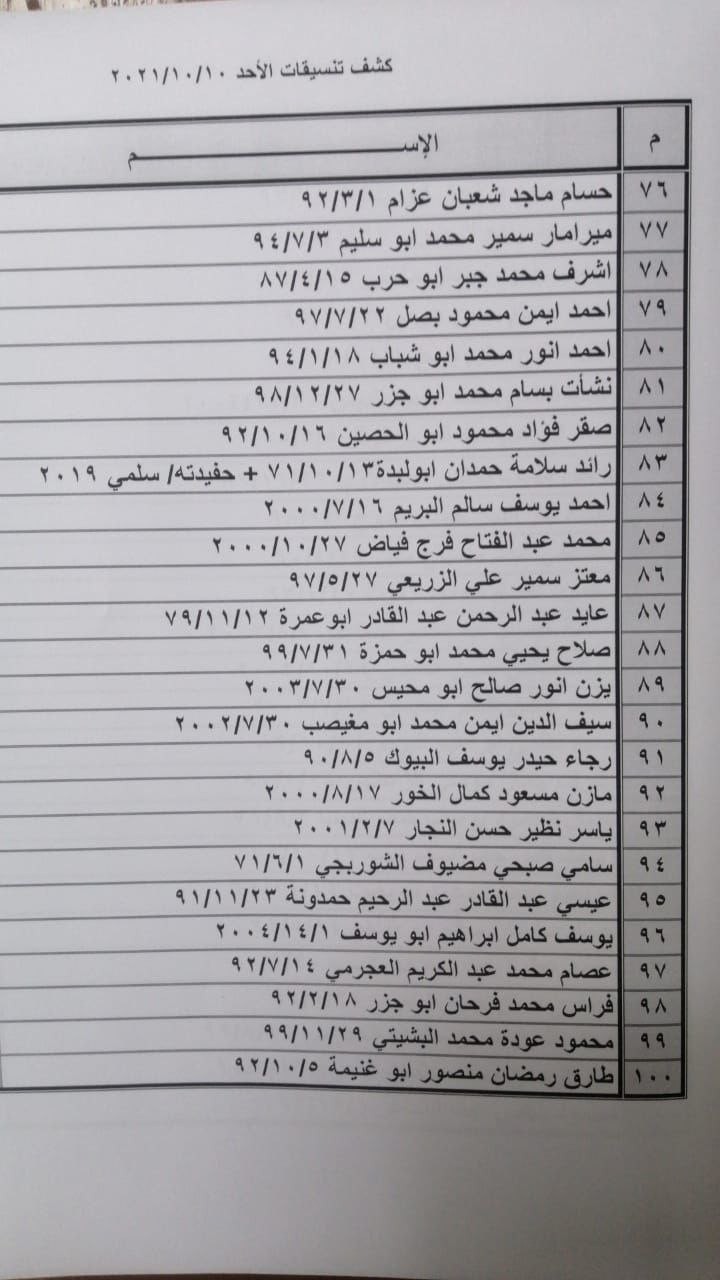 كشف تنسيقات الأحد ٢٠٢١/١٠/١٠
م الإســـــــــــــــم
٧٦ حسام ماجد شعبان عزام ٩٢/٣/١
٧٧ ميرامار سمير محمد ابو سليم ٩٤/٧/٣
٧٨ اشرف محمد جبر ابو حرب ٨٧/٤/١٥
٧٩ احمد ايمن محمود بصل ٩٧/٧/٢٢
٨٠ احمد انور محمد ابو شباب ٩٤/١/١٨
٨١ نشأت بسام محمد ابو جزر ٩٨/١٢/٢٧
٨٢ صقر فؤاد محمود ابو الحصين ٩٢/١٠/١٦
٨٣ رائد سلامة حمدان ابولبدة٧١/١٠/١٣ + حفيدته/ سلمي ٢٠١٩
٨٤ احمد يوسف سالم البريم ٢٠٠٠/٧/١٦
٨٥ محمد عبد الفتاح فرج فياض ٢٠٠٠/١٠/٢٧
٨٦ معتز سمير علي الزريعي ٩٧/٥/٢٧
٨٧ عايد عبد الرحمن عبد القادر ابوعمرة ٧٩/١١/١٢
٨٨ صلاح يحيي محمد ابو حمزة ٩٩/٧/٣١
٨٩ يزن انور صالح ابو محيس ٢٠٠٣/٧/٣٠
٩٠ سيف الدين ايمن محمد ابو مغيصب ٢٠٠٢/٧/٣٠
٩١ رجاء حيدر يوسف البيوك ٩٠/٨/٥
٩٢ مازن مسعود كمال الخور ٢٠٠٠/٨/١٧
٩٣ ياسر نظير حسن النجار ٢٠٠١/٢/٧
٩٤ سامي صبحي مضيوف الشوربجي ٧١/٦/١
٩٥ عيسي عبد القادر عبد الرحيم حمدونة ٩١/١١/٢٣
٩٦ يوسف كامل ابراهيم ابو يوسف ٢٠٠٤/١٤/١
٩٧ عصام محمد عبد الكريم العجرمي ٩٢/٧/١٤
٩٨ فراس محمد فرحان ابو جزر ٩٢/٢/١٨
٩٩ محمود عودة محمد البشيتي ٩٩/١١/٢٩
١٠٠ طارق رمضان منصور ابو غنيمة ٩٢/١٠/٥